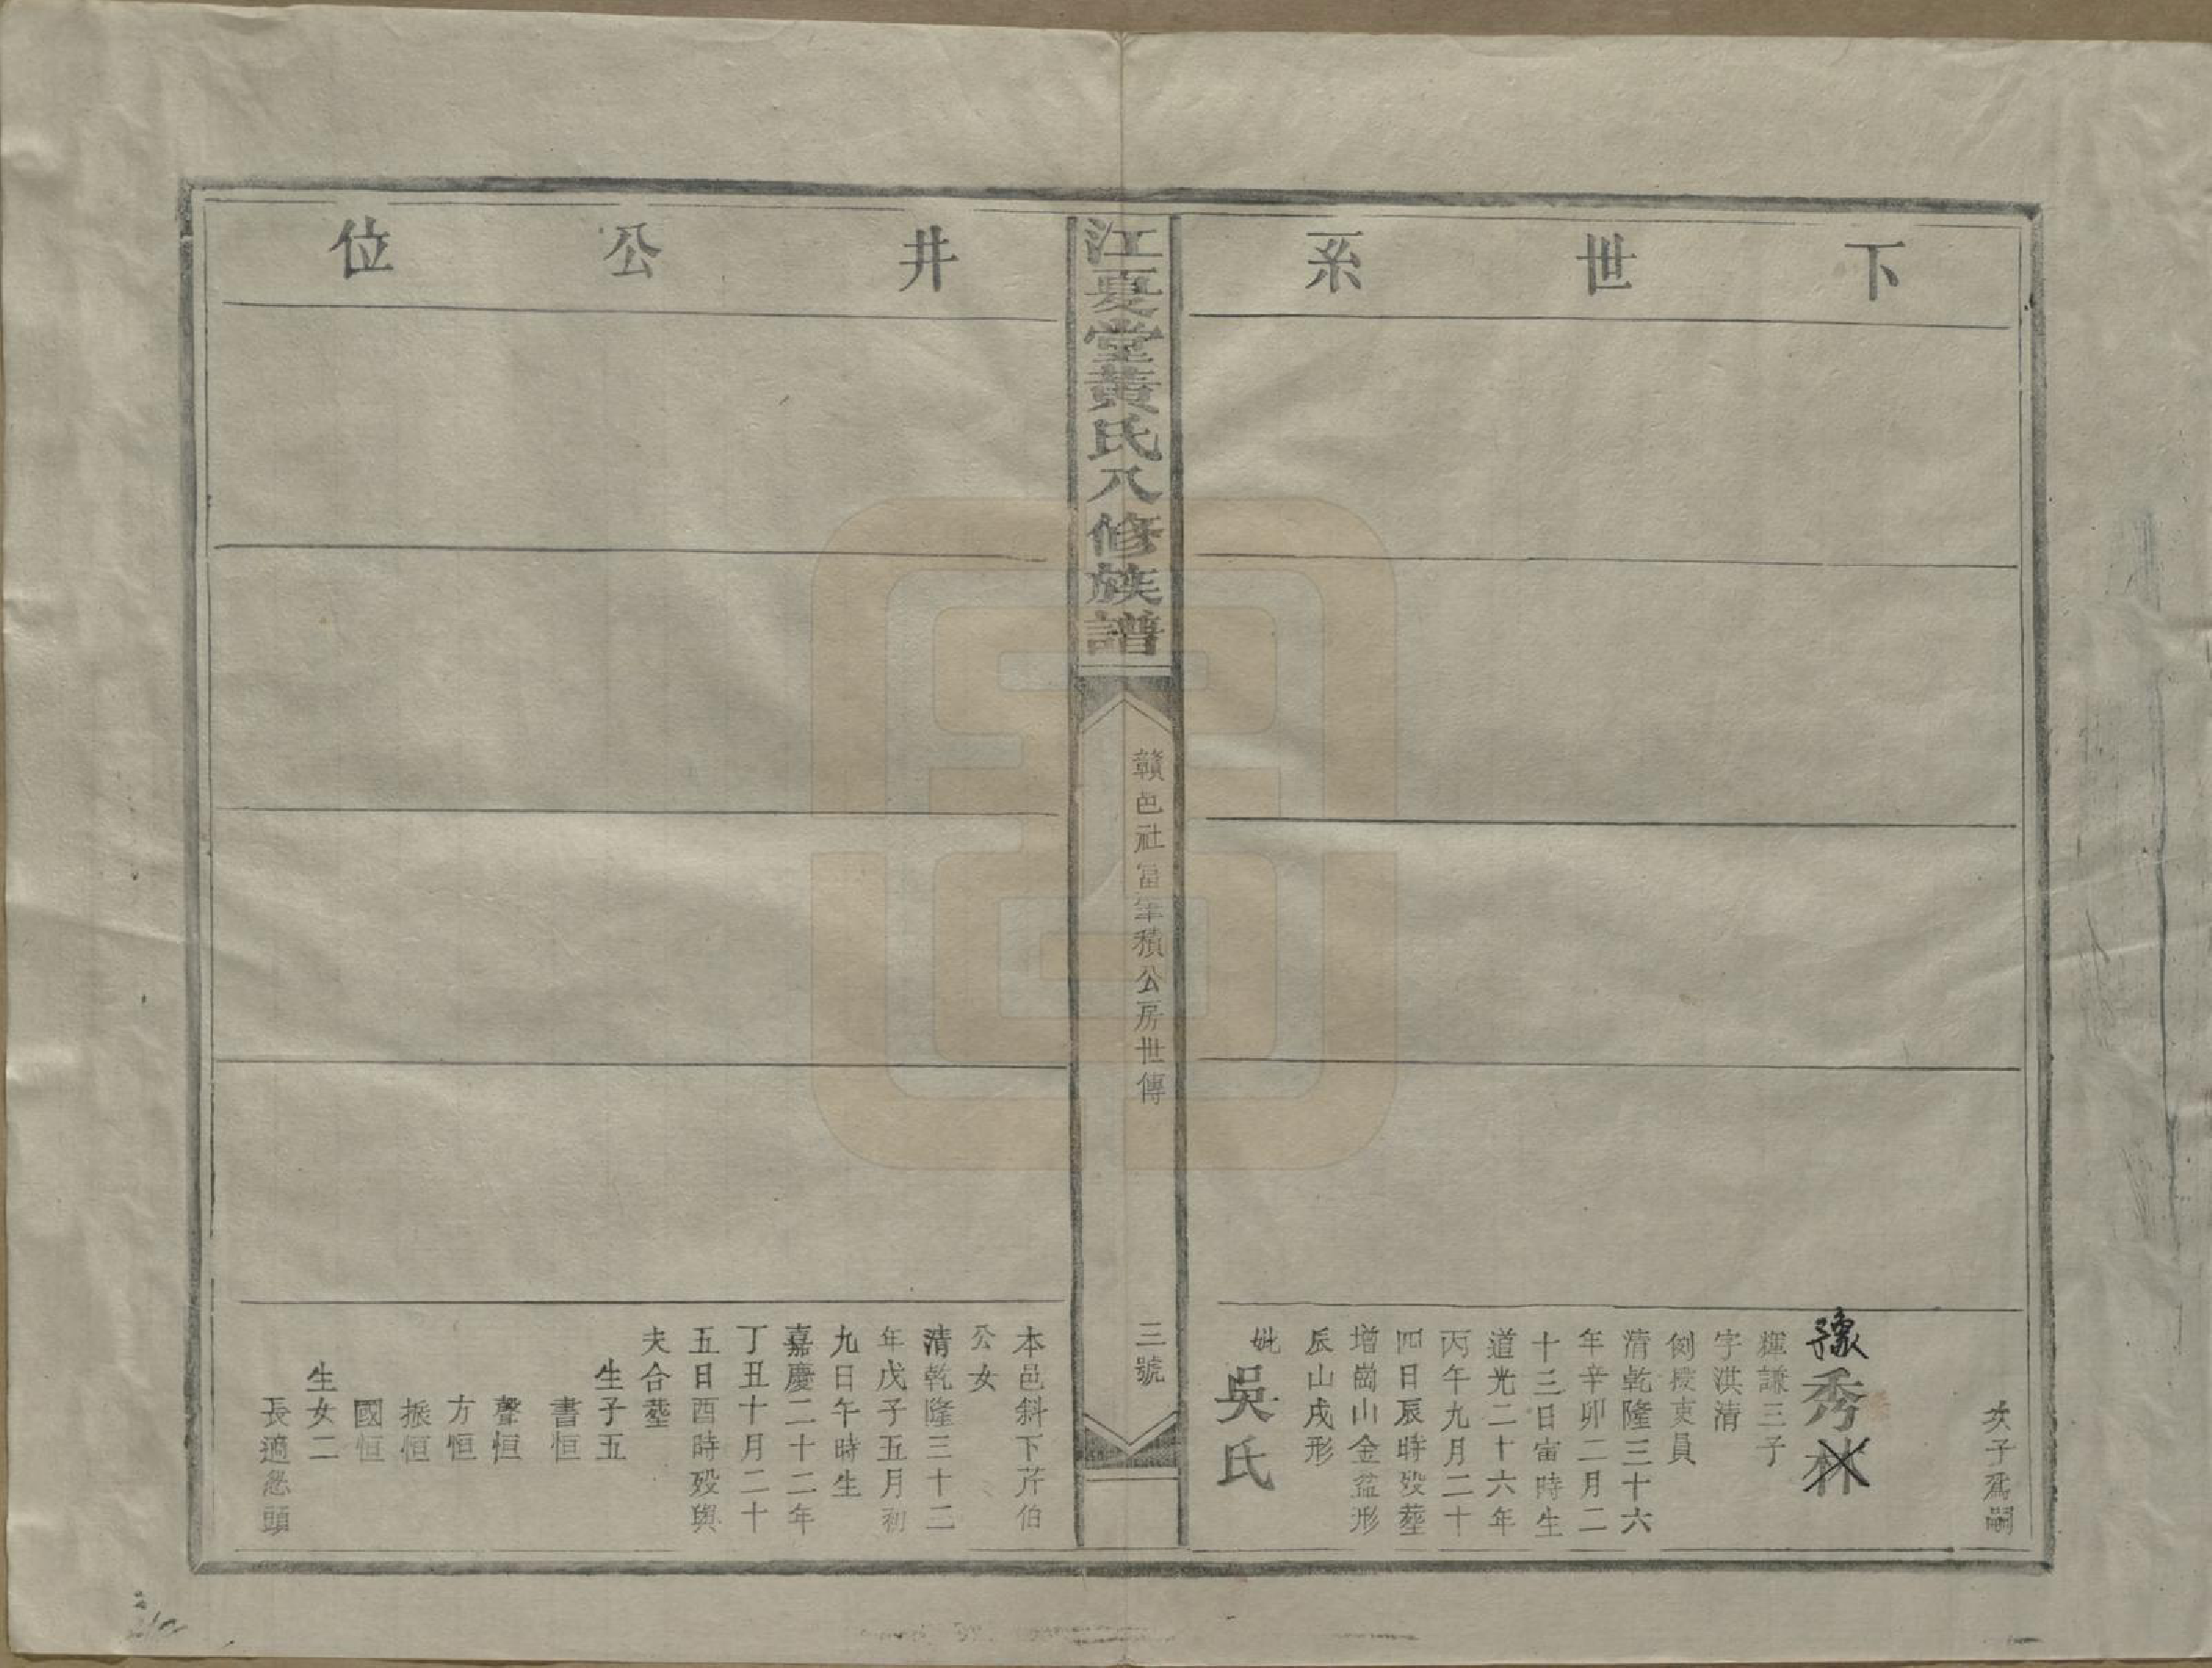 下世系
次子爲嗣
豫
秀林
樫謙三子
字淇清
例授吏員
清乾隆三十六
年辛卯二月二
十三日寅時生
道光二十六年
丙午九月二十
四日辰時殁葬
增崗山金盆形
辰山戌形
妣吳氏
江夏堂黃氏八修族譜
贛邑社富宰積公房世傳
三號
井公位
本邑斜下芹伯
公女
清乾隆三十二
年戊子五月初
九日午時生
嘉慶二十二年
丁丑十月二十
五日酉時殁與
夫合葬
生子五
書恒
聲恒
方恒
振恒
國恒
生女二
長適忩頭